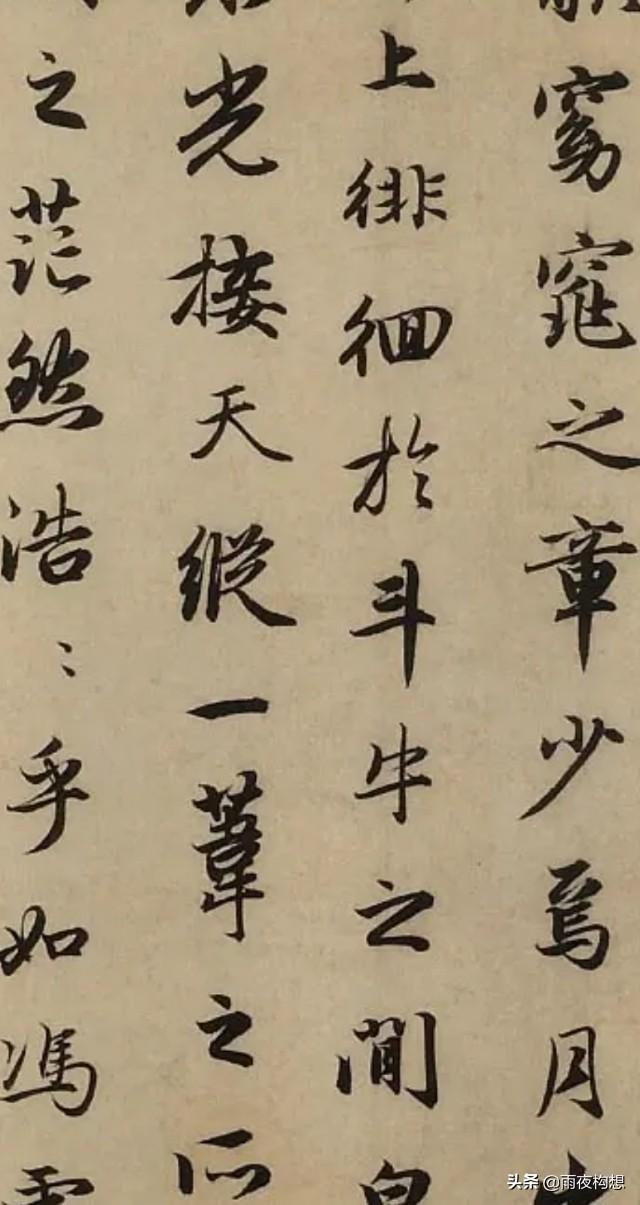 窈窕之章少焉月
上徘徊於斗牛之間白
光接天縱一葦之所
之茫然浩〻乎如馮
头条 @雨夜构想